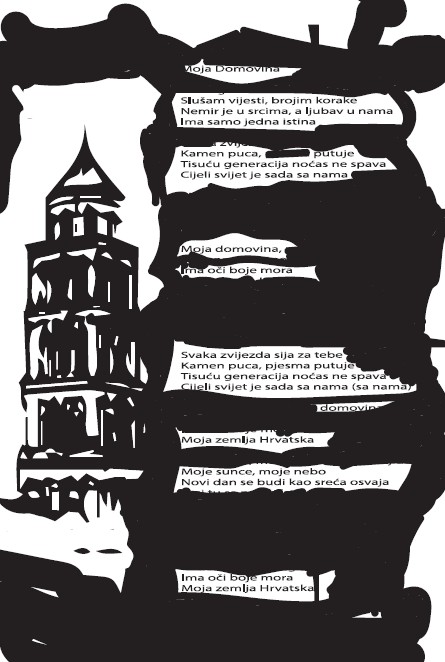 Moja Domovina
Slušam vijesti, brojim korake
Nemir je u srcima, a ljubav u nama
Ima samo jedna istina
Kamen puca, putuje
Tisuću generacija noćas ne spava
Cijeli svijet je sada sa nama
Moja domovina,
Ima oči boje mora
Svaka zvijezda sija za tebe
Kamen puca, pjesma putuje
Tisuću generacija noćas ne spava
Cijeli svijet je sada sa nama (sa nama)
domovin
Moja zemlja Hrvatska
Moje sunce, moje nebo
Novi dan se budi kao sreća osvaja
Ima oči boje mora
Moja zemlja Hrvatska